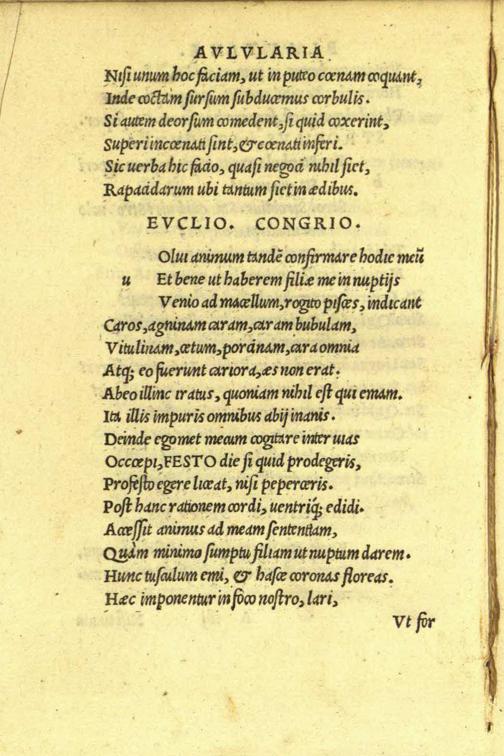 AVLVLARIA
Nisi unum hoc faciam, ut in puteo cœnam coquant,
Inde coctam sursum subducemus corbulis.
Si autem deorsum comedent, si quid coxerint,
Superi incœnati sint, & cœnati inferi.
Sic verba hic facio, quasi negoci nihil siet,
Rapacidarum ubi tantum siet in ædibus.
EVCLIO. CONGRIO.
Olui animum tandē confirmare hodie meū
u Et bene ut haberem filiæ me in nuptijs
Venio ad macellum, rogito pisces, indicant
Caros, agninam caram, caram bubulam,
Vitulinam, cetum, porcinam, cara omnia
Atq; eo fuerunt cariora, æs non erat.
Abeo illinc iratus, quoniam nihil est qui emam.
Ita illis impuris omnibus abij inanis.
Deinde egomet mecum cogitare inter uias
Occœpi, FESTO die si quid prodegeris,
Profesto egere liceat, nisi peperceris.
Post hanc rationem cordi, uentriq; edidi.
Accessit animus ad meam sententiam,
Quàm minimo sumptu filiam ut nuptum darem.
Hunc tusculum emi, & hasce coronas floreas.
Hæc imponentur in foco nostro, lari,
Vt for